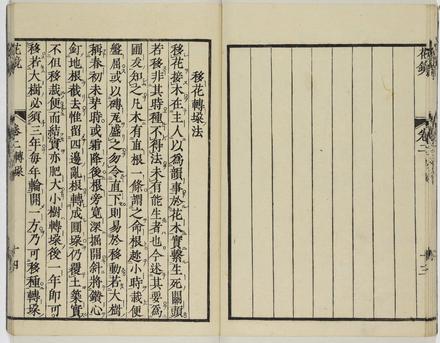 花鏡
卷二
十三
移花轉垛法
移花接木在主人以為韻事於花木實繫生死關頭
若移非其時種不得法未有能生者也今述其要為
圃友知之凡木有直根一條謂之命根趂小時栽便
盤屈或以磚瓦盛之勿令直下則易於移動若大樹
稱春初未芽時或霜降後根旁寬深掘開斜將鑽心
釘地根截去惟留四邊亂根轉成圓垛仍覆土築實
不但移栽便而結實亦肥大小樹轉垛後一年即可
移若大樹必須三年每年輪開一方乃可移種轉垛
花鏡
卷二轉垛
十四